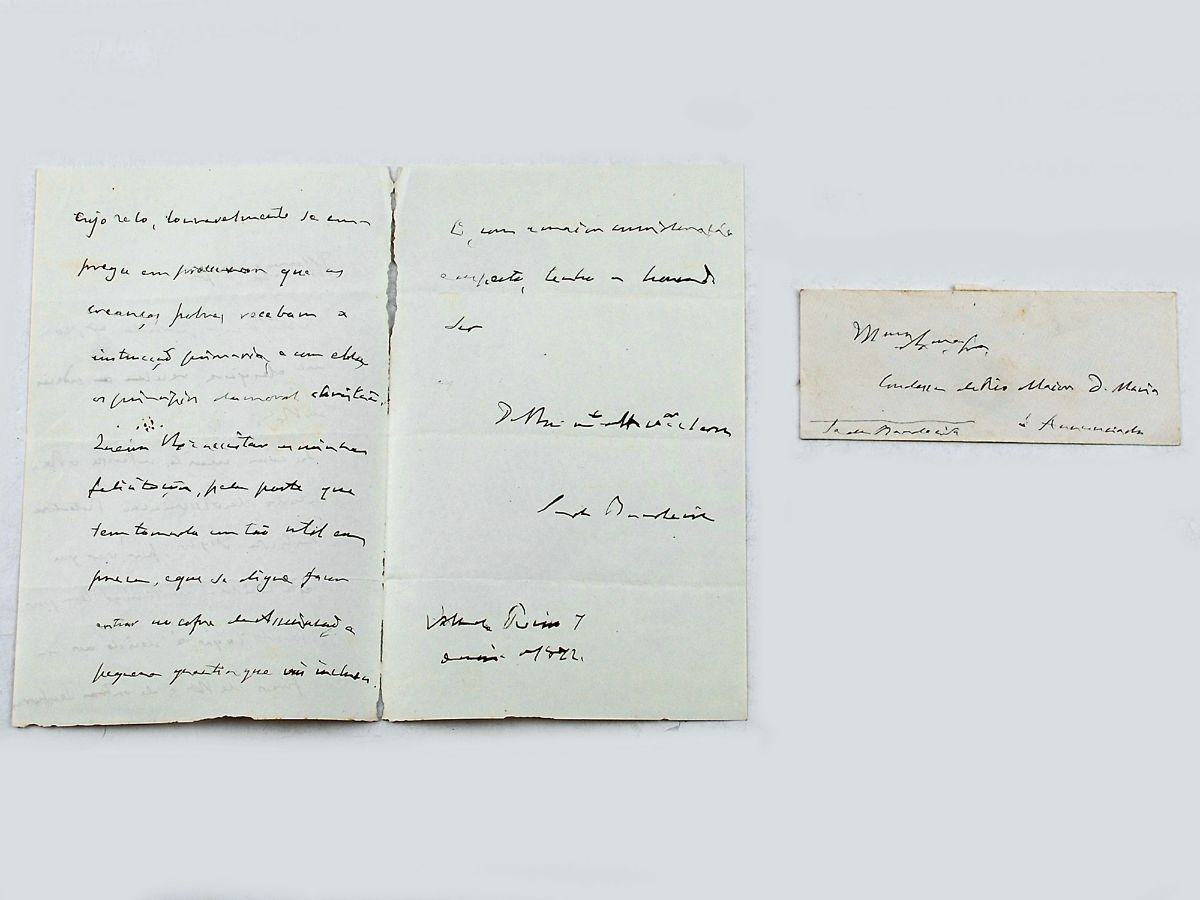 cujo zelo, louvavelmente se em-
prega em procurar que as
creanças pobres recebam a
instrucção primaria, e com ella,
os principios da moral christãa.
Queira acceitar as minhas
felicitações, pela parte que
tem tomado em tão util em
preza, e que se digne fazer
entrar no cofre da Associação a
pequena quantia que vai inclusa.
E, com a maior consideração
e respeito, tenho a honra de
ser
Sá da Bandeira
7
de 1872.
Condessa de Rio Maior D. Maria
á Annunciada
Sá da Bandeira